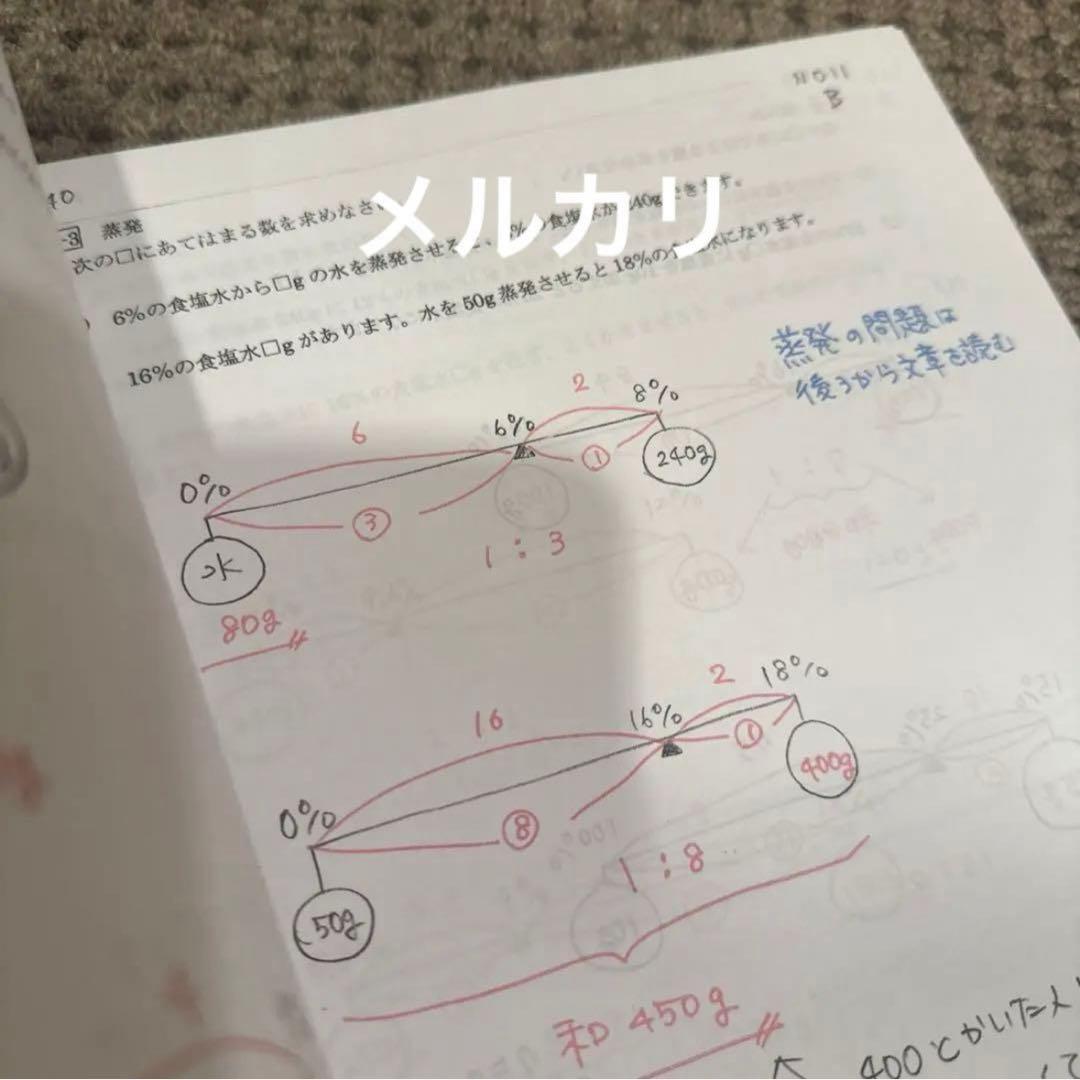 40
B
蒸発
次の□にあてはまる数を求めなさ
メルカリ
6%の食塩水から□gの水を蒸発させる %の食塩水が240gできます。
16%の食塩水□gがあります。水を50g蒸発させると18%の食塩水になります。
蒸発の問題は
後ろから文章を読む
0% 6 6% 2 8%
③ ① 240g
水 1:3
80g
0% 16 16% 2 18%
⑧ ① 400g
50g 1:8
和450g
400とかいた人